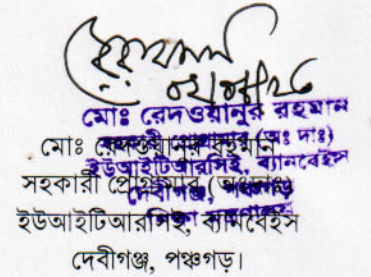 মোঃ রেদওয়ানুর রহমান
সহকারী প্রোগ্রামার (অঃ দাঃ)
ইউআইটিআরসিই, ব্যানবেইস
দেবীগঞ্জ, পঞ্চগড়
মোঃ রেদওয়ানুর রহমান
সহকারী প্রোগ্রামার (অঃ দাঃ)
ইউআইটিআরসিই, ব্যানবেইস
দেবীগঞ্জ, পঞ্চগড়।